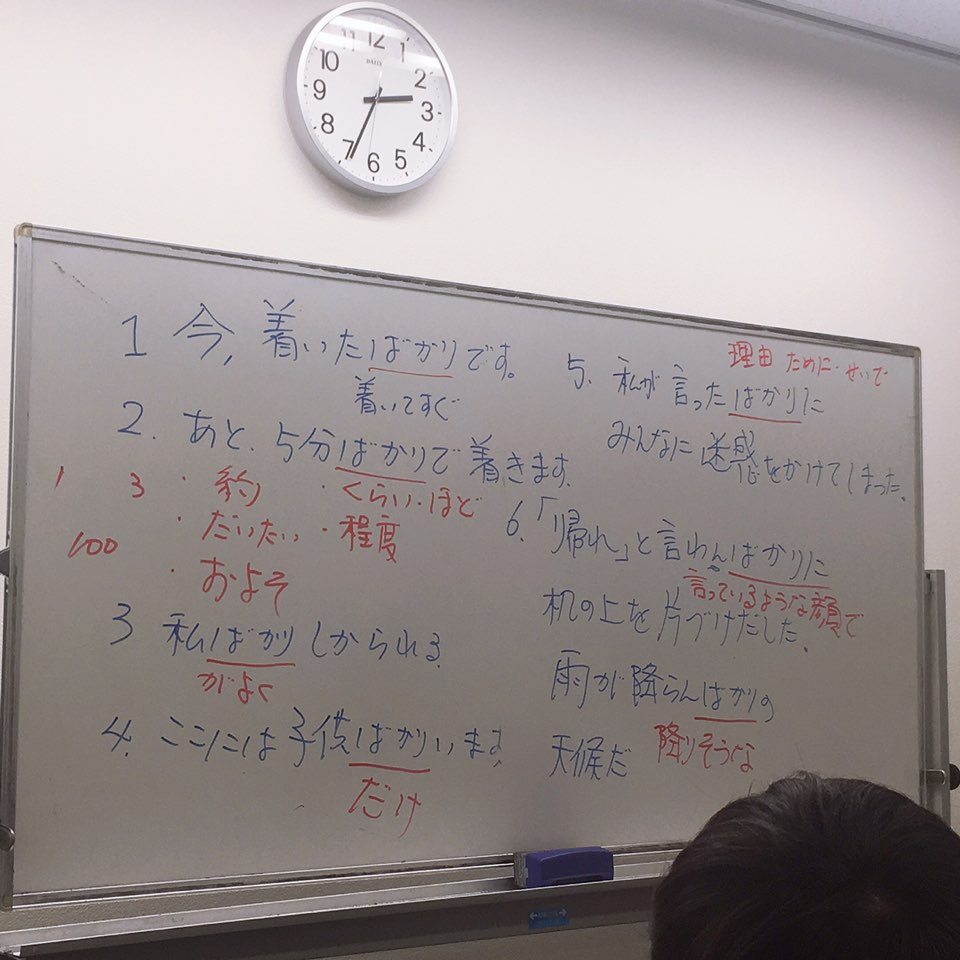 12 1 2 3 4 5 6 7 8 9 10 11
1 今,着いたばかりです。
着いてすぐ
2. あと、5分ばかりで着きます。
1 3 ・豹 ・くらい・ほど
・だいたい ・程度
100
・およそ
3 私ばかりしかられる。
がよく
4. ここには子供ばかりいます。
だけ
理由 ために・せいで
5. 私が言ったばかりに
みんなに迷惑をかけてしまった。
6.「帰れ」と言わんばかりに
言っているような顔で
机の上を片づけだした。
雨が降らんばかりの
天候だ 降りそうな